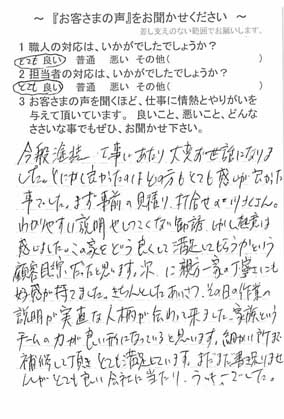 ～ 『お客さまの声』をお聞かせください ～
差し支えのない範囲でお願いします。
1 職人の対応は、いかがでしたでしょうか?
とても良い 普通 悪い その他( )
2 担当者の対応は、いかがでしたでしょうか?
とても良い 普通 悪い その他( )
3 お客さまの声を聞くほど、仕事に情熱とやりがいを
与えて頂いています。 良いこと、悪いこと、どんな
ささいな事でもぜひ、お聞かせ下さい。
今般塗装工事にあたり大変お世話になりま
した。とにかく良かったのはどの方もとても感じが良かった
事でした。まず事前の見積り、打合せの
わかりやすい説明やしつこくない勧誘、
感じました。この家をどう良くして満足してもらうかという
顧客目線だったと思います。次に親方一家の丁寧さにも
好感が持てました。きちんとしたあいさつ、その日の作業の
説明が実直な人柄が伝わって来ました。家族という
チームの力が良い形になっていると思います。細かい所まで
補修して頂きとても満足しています。まだまだ
とても良い会社に当たり、うっきーでした。